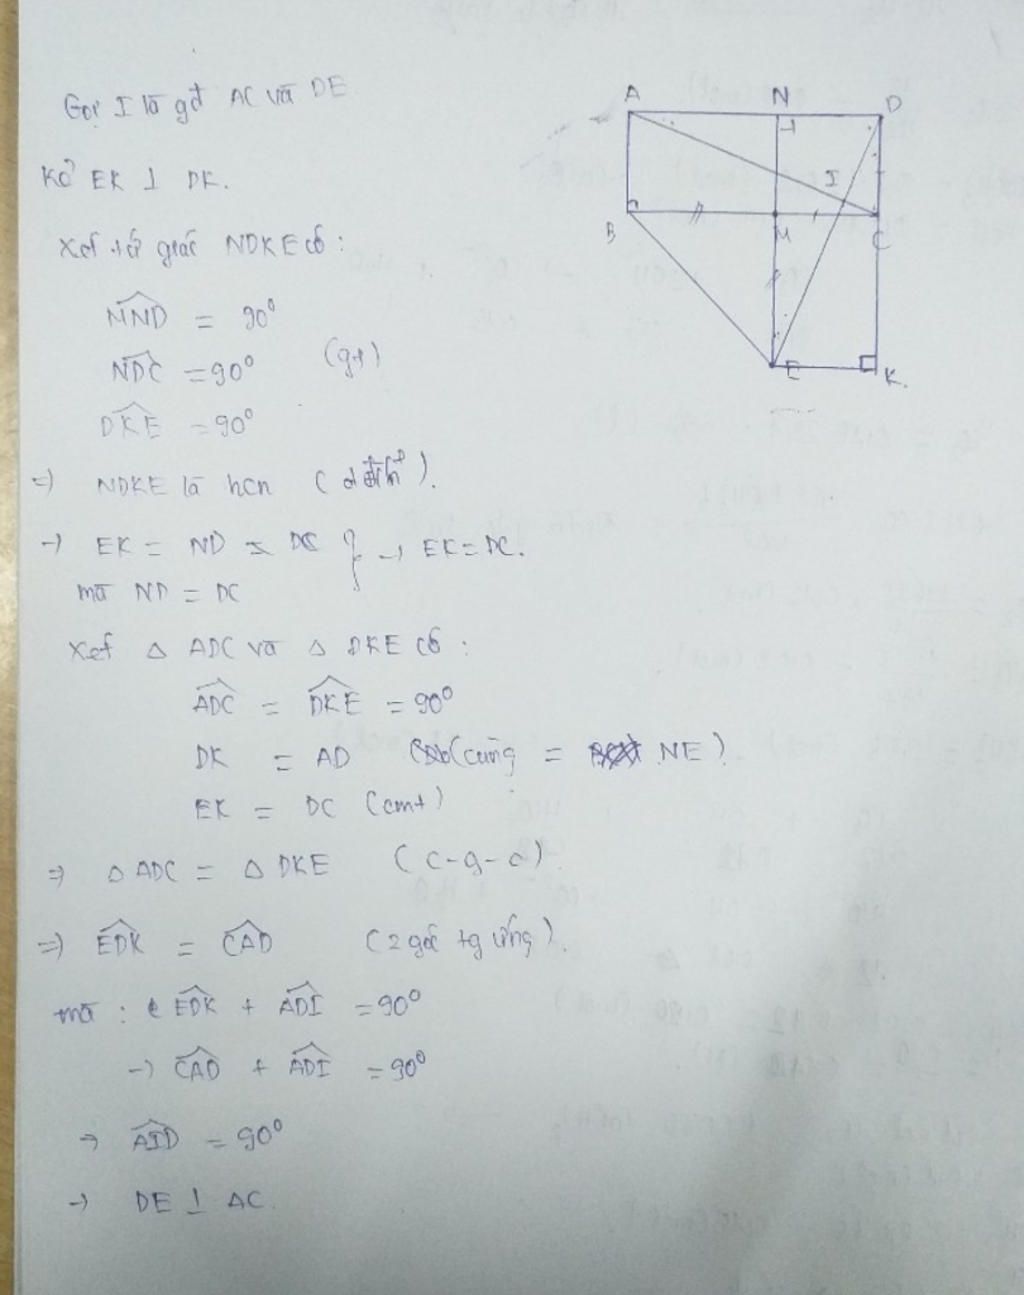 Gọi I là gđ AC và DE
Kẻ EK ⊥ DK.
Xét tứ giác NDKE có:
MND = 90°
NDC = 90° (gt)
DKE = 90°
=) NDKE là hcn
→ EK = ND = DC } → EK = DC.
mà ND = DC
Xét △ ADC và △ DKE có:
ADC = DKE = 90°
DK = AD (cùng = NE)
EK = DC (cmt)
=> △ ADC = △ DKE (c-g-c).
=) EDK = CAD (2 góc tg ứng).
mà : EDK + ADI = 90°
→ CAD + ADI = 90°
→ AID = 90°
→ DE ⊥ AC.
A N D
I
B M C
E K.